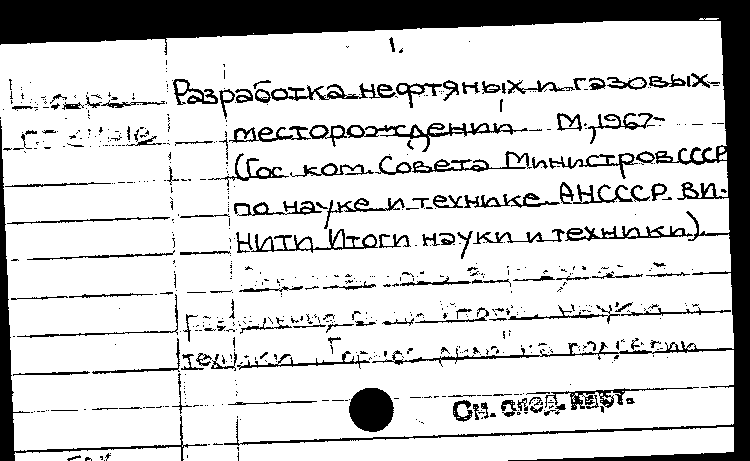 1.
Шифры Разработка нефтяных и газовых
месторождений. М., 1967-
(Гос. ком. Совета Министров СССР
по науке и технике АНСССР. ВИ-
НИТИ Итоги науки и техники).
в результате
разделения серии Итоги науки и
техники "Горное дело" на подсерии
См. след. карт.